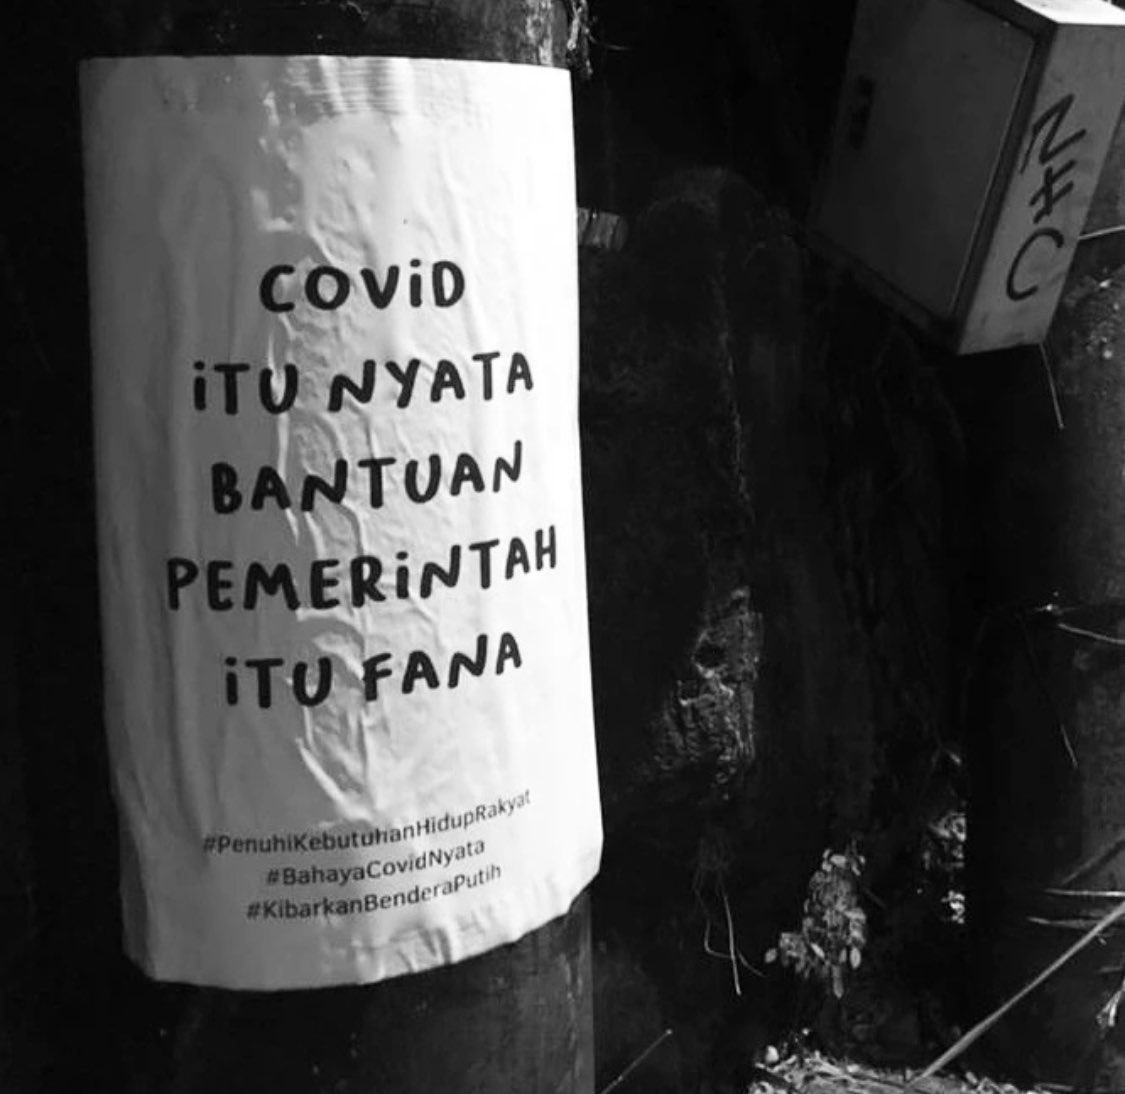 COViD
iTU NYATA
BANTUAN
PEMERiNTAH
iTU FANA
#PenuhiKebutuhanHidupRakyat
#BahayaCovidNyata
#KibarkanBenderaPutih